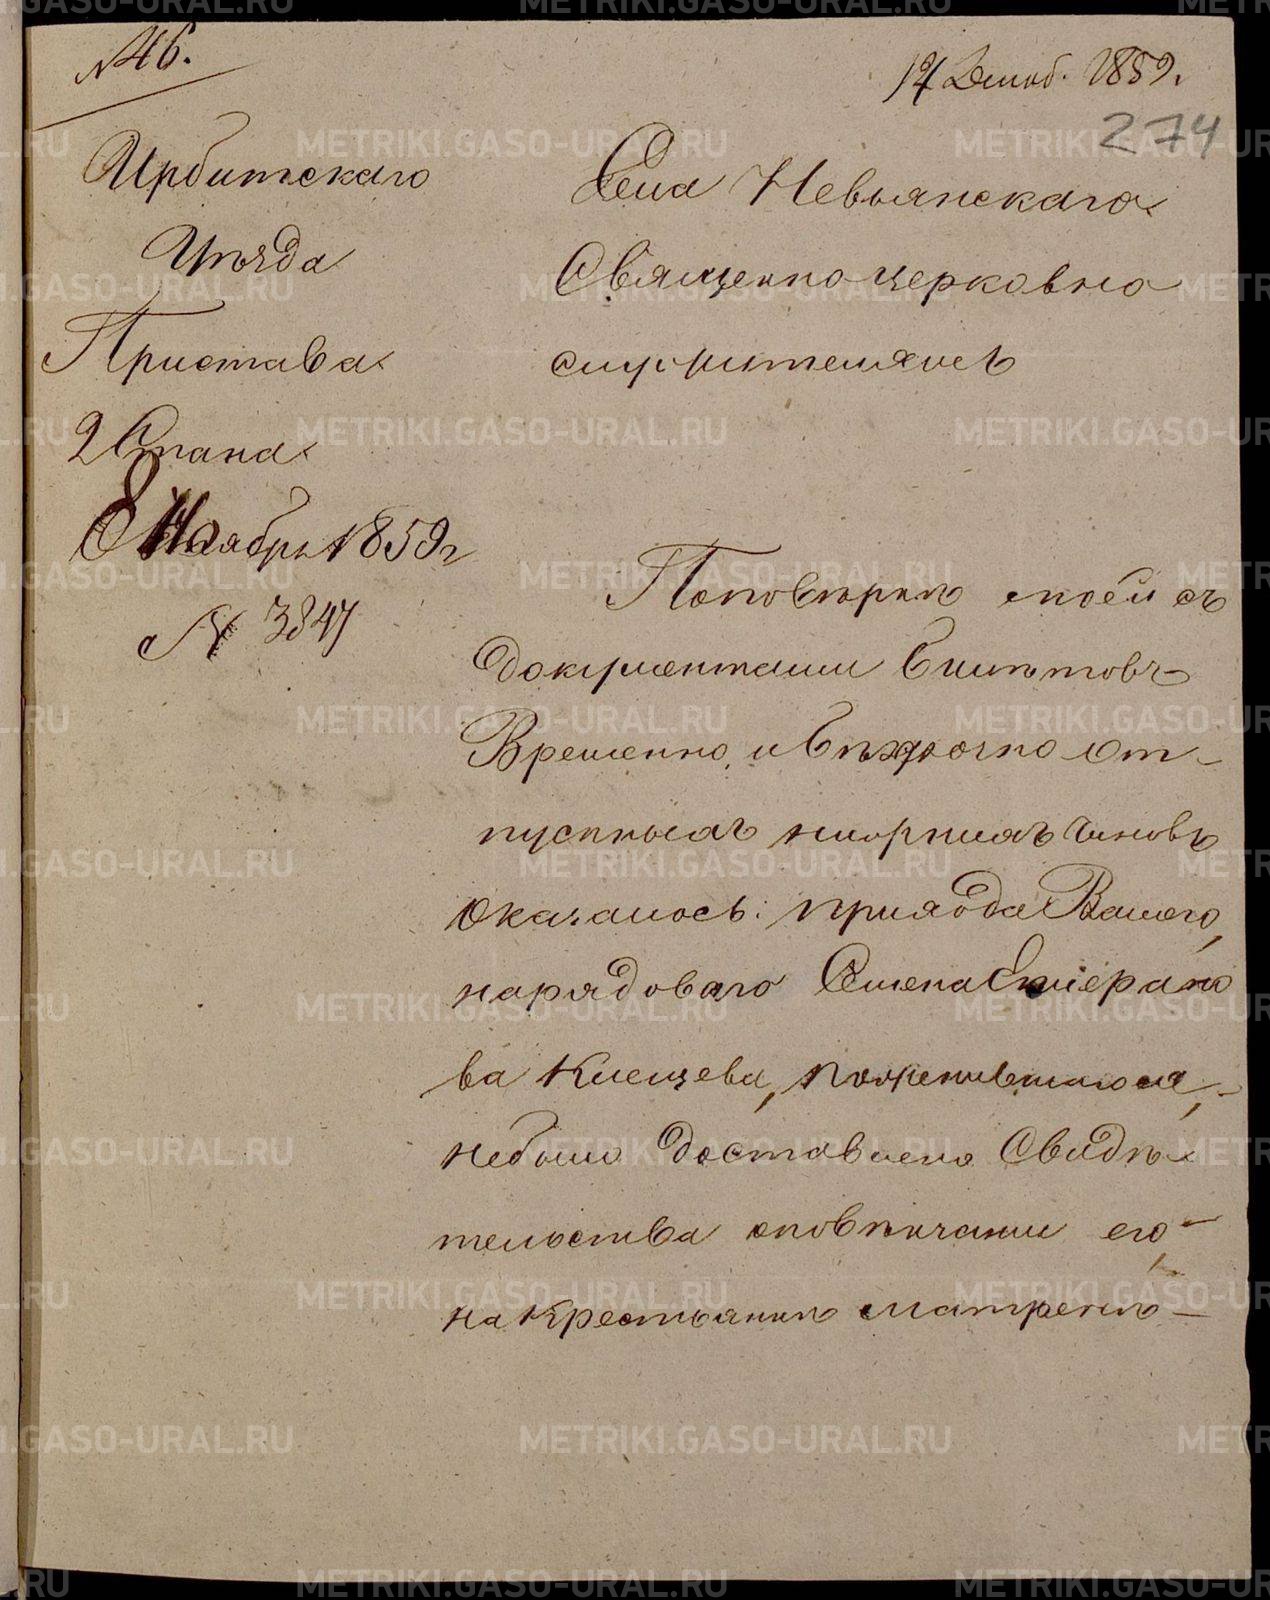 № 46.
12 Декаб. 1859.
274
Ирбитскаго
Уѣзда
Пристава
2 Стана
Ноября 1859 г
№ 3847
Села Невьянскаго
Священно церковно
служителямъ
Поповѣркѣ моей съ
документами билѣтовъ
Временно, и безсрочно от
пускныхъ нижнихъ чиновъ
оказалось: прихода Вашего,
нарядоваго Семена
ва Клещева, поженившагося,
небыло доставлено Свидѣ
тельства оповѣнчании его,
на Крестьянкѣ Матренѣ
METRIKI.GASO-URAL.RU